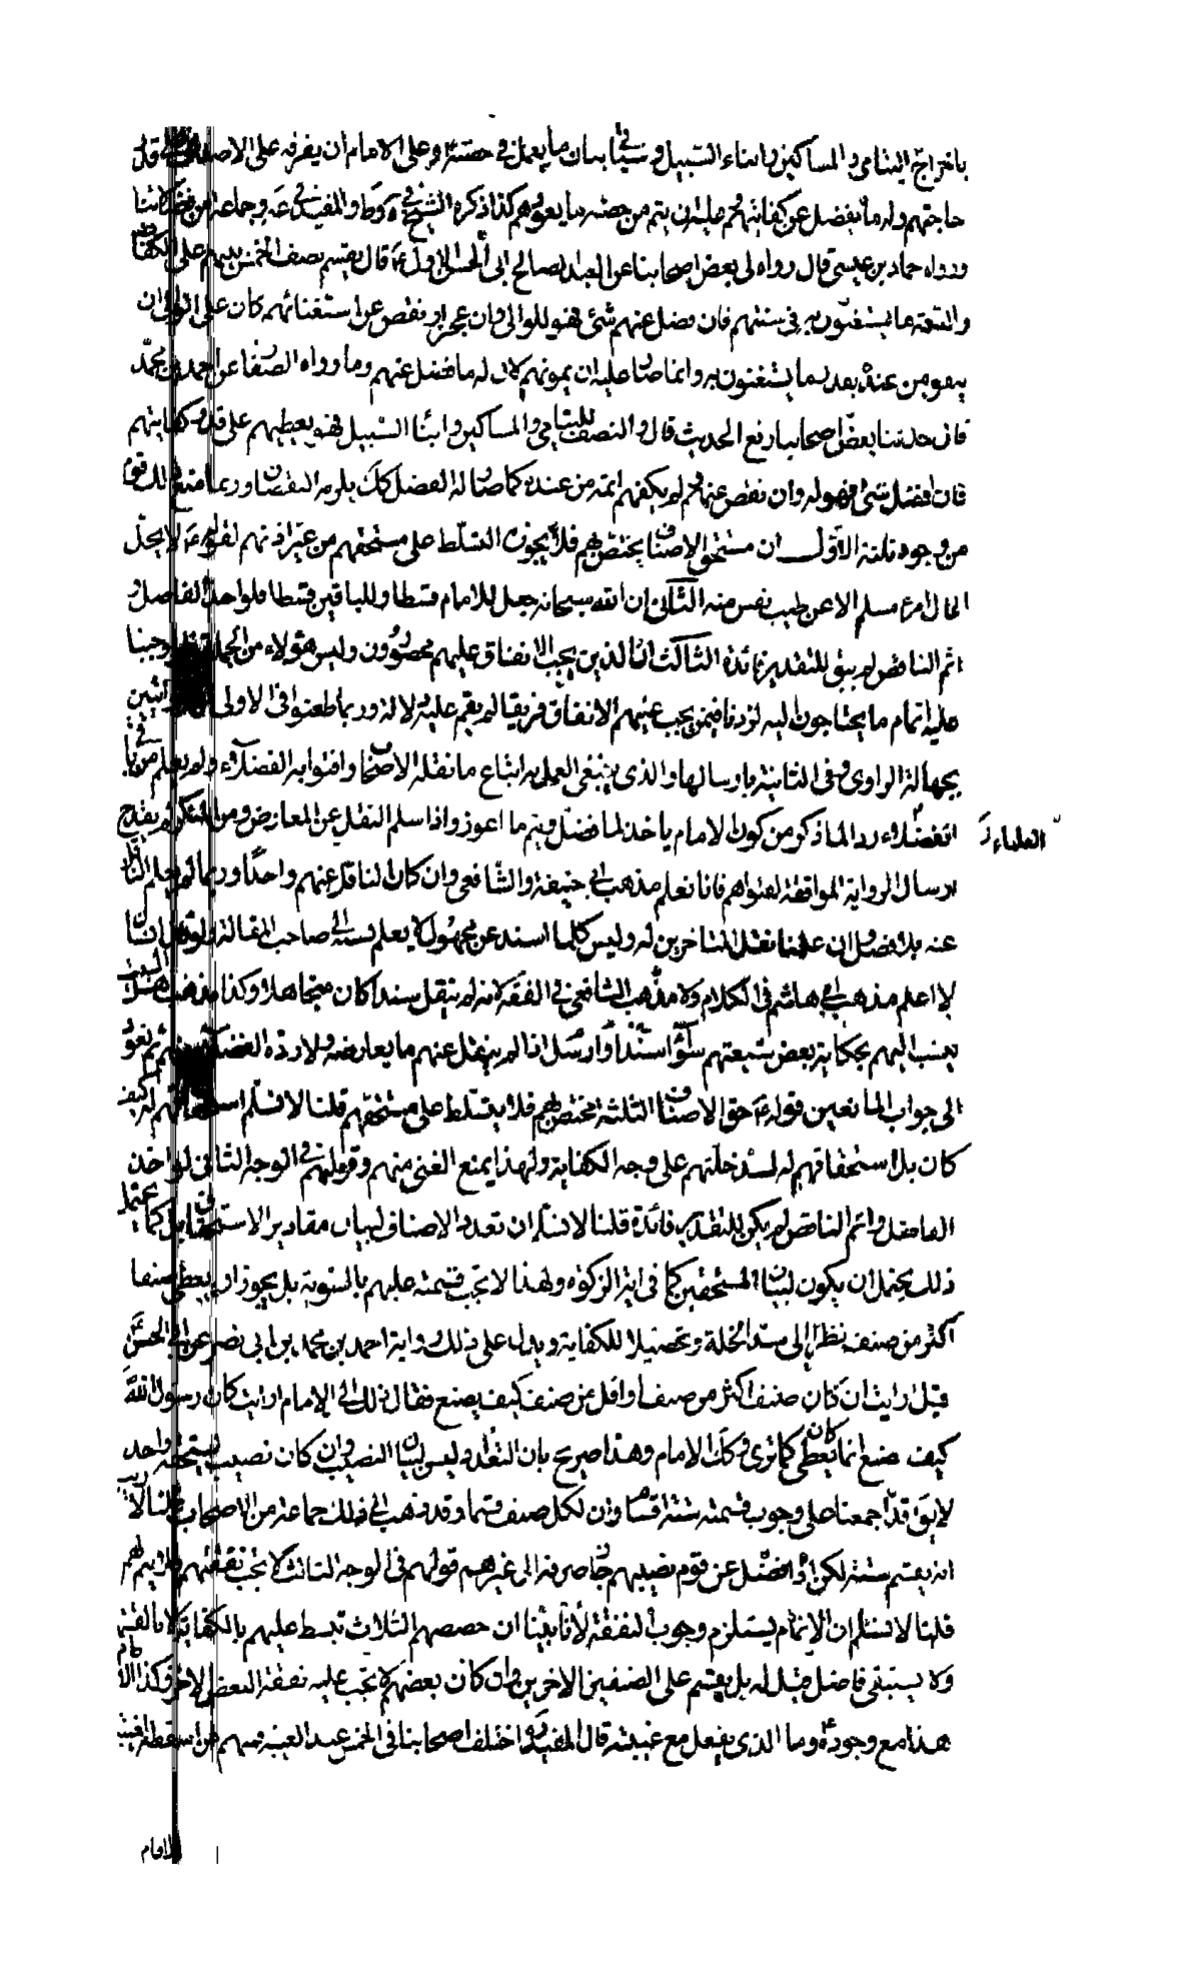 باخراج اليتامى والمساكين وابناء السبيل وسيأتي بيان ما يعمل في حصته وعلى الامام ان يفرقه على الاصناف على قدر
حاجتهم وله ما يفضل عن كفايتهم وعليه ان يتم من حصته ما يعوزهم كذا ذكره الشيخ في ية وط والمفيد في عه وجماعة من فضلائنا
ورواه حماد بن عيسى قال رواه لي بعض اصحابنا عن العبد الصالح ابي الحسن الاول ع قال يقسم نصف الخمس بينهم على الكفاف
والسعة ما يستغنون به في سنتهم فان فضل عنهم شئ فهو للوالي وان عجز او نقص عن استغنائهم كان على الوالي ان
ينفق من عنده بقدر ما يستغنون به وانما صار عليه ان يمونهم لان له ما فضل عنهم وما رواه الصفار عن احمد بن محمد
قال حدثنا بعض اصحابنا رفع الحديث قال والنصف لليتامى والمساكين وابناء السبيل فهو يعطيهم على قدر كفايتهم
فان فضل شئ فهو له وان نقص عنهم ولم يكفهم اتمه من عنده كما صار له الفضل كك يلزمه النقصان وربما منع ذلك قوم
من وجوه ثلثة الاول ان مستحق الاصناف يختص بهم فلا يجوز التسلط على مستحقهم من غير اذنهم لقوله ع لا يحل
مال امرء مسلم الا عن طيب نفس منه الثاني ان الله سبحانه جعل للامام قسطا وللباقين قسطا فلو اخذ الفاضل و
اتم الناقص لم يبق للتقدير فائدة الثالث ان الذين يجب الانفاق عليهم محصورون وليس هؤلاء من الجملة فلو اوجبنا
عليه اتمام ما يحتاجون اليه لزدنا فيمن يجب عليهم الانفاق فريقا لم يقم عليه دلالة وربما طعنوا في الاولى
بجهالة الراوي وفي الثانية بارسالها والذي ينبغي العمل به اتباع ما نقله الاصحاب وافتوا به الفضلاء ولم يعلم من باقي
الفضلاء رد الماذكر من كون الامام يأخذ ما فضل ويتم ما اعوز واذا سلم النقل عن المعارض ومن المنكر لم يقدح
العلماء
ارسال الرواية الموافقة لفتواهم فانا نعلم مذهب ابي حنيفة والشافعي وان كان الناقل عنهم واحدا وربما لم يعلم الناقل
عنه بلا فصل وان علمنا نقل المتاخرين له وليس كلما اسند عن مجهول لا يعلم نسبته الى صاحب المقالة ولو قال انسان
لا اعلم مذهب ابي هاشم في الكلام ولا مذهب الشافعي في الفقه لانه لم ينقل مسندا كان متجاهلا وكذا مذهب اهل البيت
ينسب اليهم بحكاية بعض شيعتهم سواء اسند او ارسل اذا لم ينقل عنهم ما يعارضه ولا رده الفضلاء منهم ثم نعود
الى جواب المانعين قوله ع حق الاصناف الثلثة مختص بهم فلا يتسلط على مستحقهم قلنا لا نسلم استحقاقهم له كيف
كان بل استحقاقهم له لسد خلتهم على وجه الكفاية ولهذا يمنع الغني منهم وقولهم في الوجه الثاني لو اخذ
الفاضل واتم الناقص لم يكن للتقدير فائدة قلنا لا نسلم ان تعدد الاصناف لبيان مقادير الاستحقاق بل كما يحتمل
ذلك يحتمل ان يكون لبيان المستحقين كما في اية الزكوة ولهذا لا تجب قسمته عليهم بالسوية بل يجوز ان يعطى صنفا
اكثر من صنف نظرا الى سد الخلة وتحصيلا للكفاية ويدل على ذلك رواية احمد بن محمد بن ابي نصر عن ابي الحسن ع
قيل ارايت ان كان صنف اكثر من صنف او اقل من صنف كيف يصنع فقال ذلك الى الامام ارايت كان رسول الله
كيف صنع انما كان يعطى كما ترى وكك الامام وهذا صريح بان التعداد ليس لبيان النصيب وان كان نصيب يستحقه واحد
لا يق قد اجمعنا على وجوب قسمته ستة اقسام وان لكل صنف قسما وقد ذهب الى ذلك جماعة من الاصحاب قلنا لا ريب
انه يقسم ستة لكن اذا فضل عن قوم نصيبهم جاز صرفه الى غيرهم قولهم في الوجه الثالث لا تجب نفقتهم فلا يتم لهم
قلنا لا نسلم ان الاتمام يستلزم وجوب النفقة لانا بينا ان حصصهم الثلاث تبسط عليهم بالكفاية لا بالقسمة
ولا يستبقى فاضل قبيل له بل يقسم على الصنفين الاخرين وان كان بعضهم لا تجب عليه نفقة البعض الاخر فكذا الامام
هذا مع وجوده ع وما الذي يفعل مع غيبته قال المفيد ره اختلف اصحابنا في الخمس عند الغيبة فمنهم من اسقط
الامام